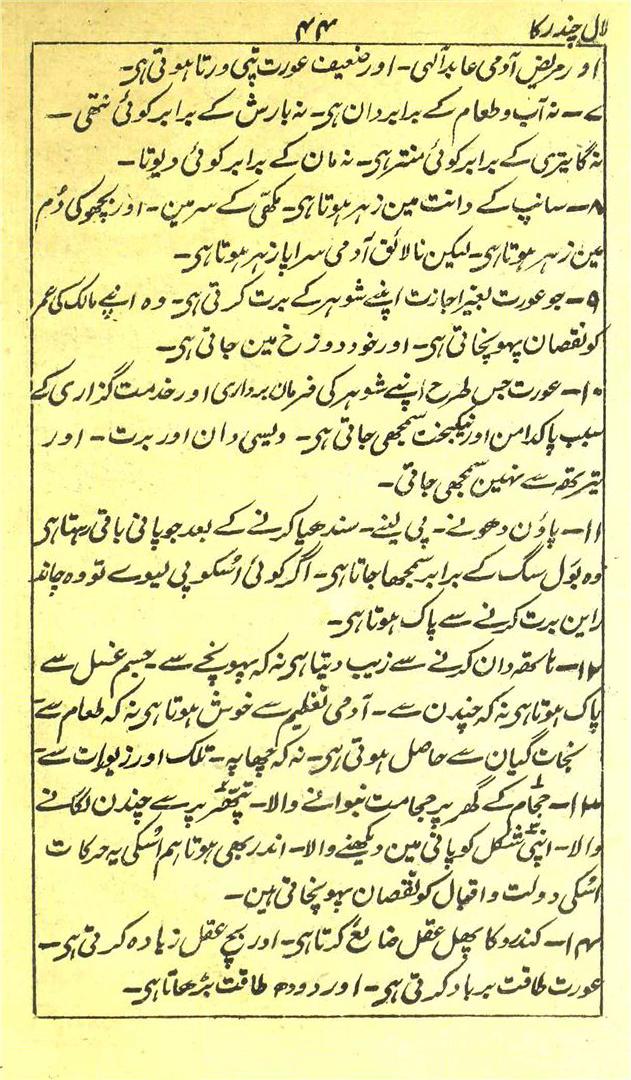 لال چندرکا ۴۴
اور مریض آدمی عابد آلہی - اور ضعیف عورت پتی ورتا ہوتی ہی -
۷ - نہ آب و طعام کے برابر دان ہی - نہ بارش کے برابر کوئی تتھی -
نہ گایتری کے برابر کوئی منتر ہی - نہ مان کے برابر کوئی دیوتا -
۸ - سانپ کے دانت مین زہر ہوتا ہی - مکھی کے سر مین - اور بچھو کی دُم
مین زہر ہوتا ہی - لیکن نالائق آدمی سراپا زہر ہوتا ہی -
۹ - جو عورت بغیر اجازت اپنے شوہر کے برت کرتی ہی - وہ اپنے مالک کی عمر
کو نقصان پہونچاتی ہی - اور خود دوزخ مین جاتی ہی -
۱۰ - عورت جس طرح اپنے شوہر کی فرمان برداری اور خدمت گذاری کے
سبب پاکدامن اور نیکبخت سمجھی جاتی ہی - ویسی دان اور برت - اور
تیرتھہ سے نہین سمجھی جاتی -
۱۱ - پاؤن دھونے - پی لینے - سندھیا کرنے کے بعد جو پانی باقی رہتا ہی
وہ بَول سگ کے برابر سمجھا جاتا ہی - اگر کوئی اُسکو پی لیوے تو وہ چاند
راین برت کرنے سے پاک ہوتا ہی -
۱۲ - ہاتھہ دان کرنے سے زیب دیتا ہی نہ کہ پہونچے سے - جسم غسل سے
پاک ہوتا ہی نہ کہ چندن سے - آدمی تعظیم سے خوش ہوتا ہی نہ کہ طعام سے -
نجات گیان سے حاصل ہوتی ہی - نہ کہ چھاپہ - تلک اور زیورات سے -
۱۳ - حجّام کے گھر پر حجامت بنوانے والا - پتّھر پر سے چندن لگانے
والا - اپنی شکل کو پانی مین دیکھنے والا - اندر بھی ہو تاہم اُسکی یہ حرکات
اُسکی دولت و اقبال کو نقصان پہونچاتی ہین -
۱۴ - کندرو کا پھل عقل ضایع کرتا ہی - اور بچ عقل زیادہ کرتی ہی -
عورت طاقت برباد کرتی ہی - اور دودھ طاقت بڑھاتا ہی -